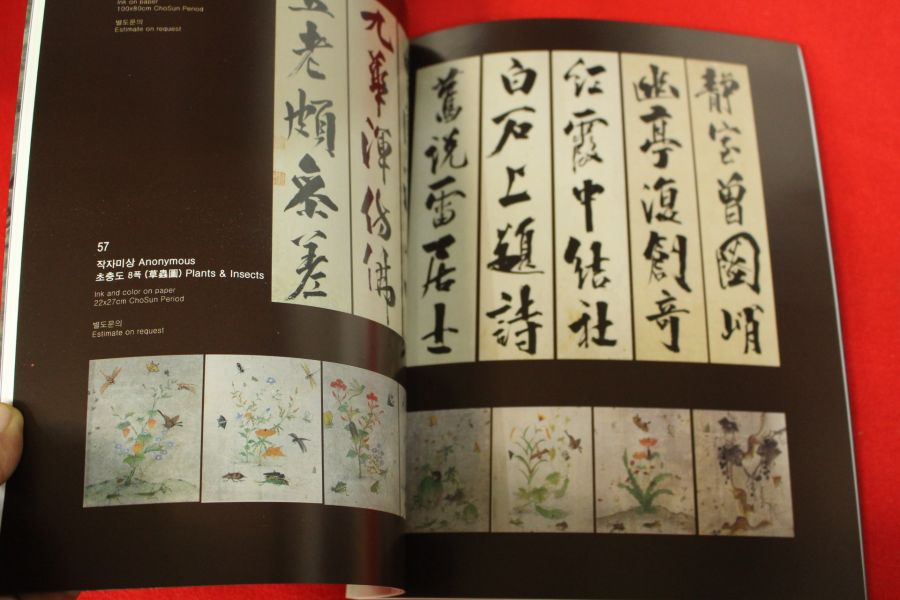 Ink on paper
100x80cm ChoSun Period
별도문의
Estimate on request
五老頗參差
九華渾仿佛
57
작자미상 Anonymous
초충도 8폭 (草蟲圖) Plants & Insects
Ink and color on paper
22x27cm ChoSun Period
별도문의
Estimate on request
靜室曾圖峭
幽亭復創奇
紅霞中結社
白石上題詩
舊說雷居士